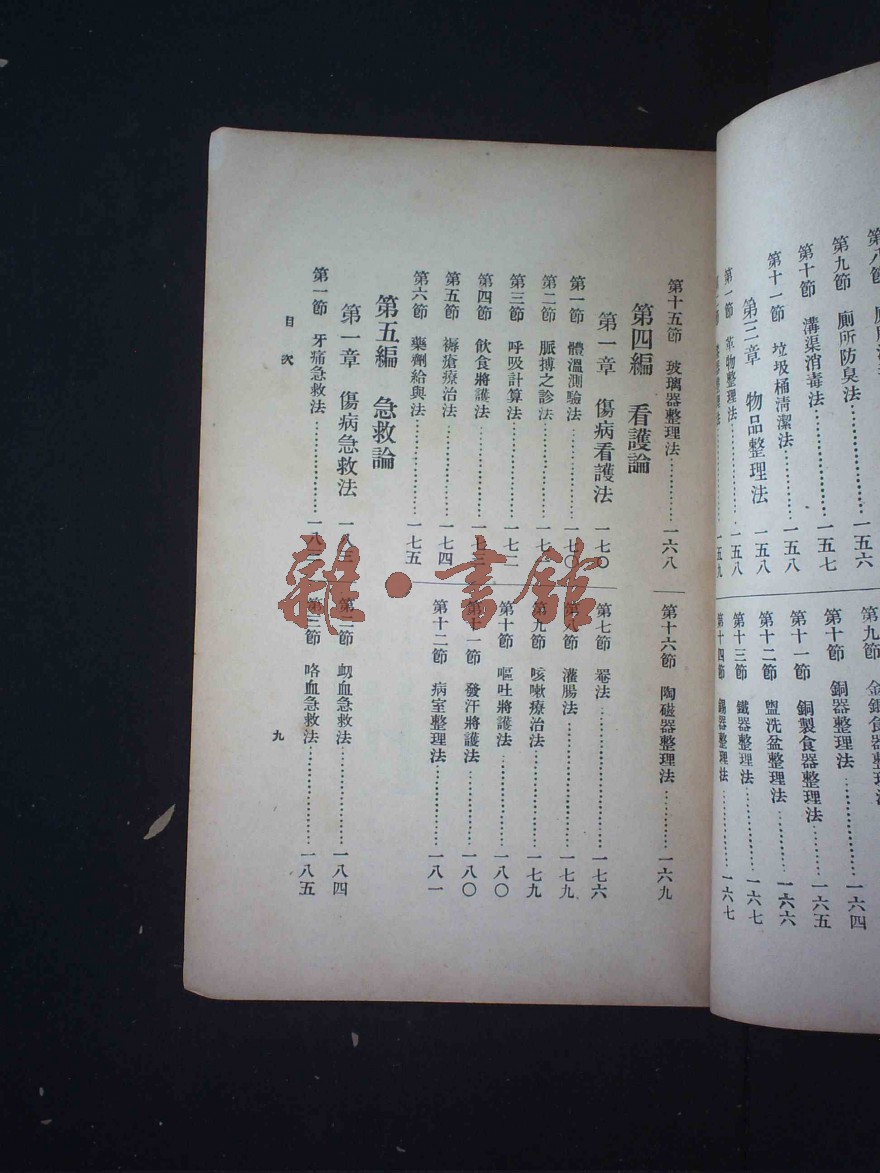 第九節 廁所防臭法
第十節 溝渠消毒法……………一五七
第十一節 垃圾桶清潔法……………一五八
第三章 物品整理法 一五八
第一節 革物整理法……………一五八
第十節 銅器整理法……………一六四
第十一節 銅製食器整理法……………一六五
第十二節 盥洗盆整理法……………一六六
第十三節 鐵器整理法……………一六七
第十五節 玻璃器整理法……………一六八
第十六節 陶磁器整理法……………一六九
第四編 看護論
第一章 傷病看護法 一七〇
第一節 體溫測驗法……………一七〇
第二節 脈搏之診法……………一七
第三節 呼吸計算法……………一七二
第四節 飲食將護法……………一七三
第五節 褥瘡療治法……………一七四
第六節 藥劑給與法……………一七五
第七節 罨法……………一七六
第八節 灌腸法……………一七九
第九節 咳嗽療治法……………一七九
第十節 嘔吐將護法……………一八〇
第十一節 發汗將護法……………一八〇
第十二節 病室整理法……………一八一
第五編 急救論
第一章 傷病急救法
第一節 牙痛急救法……………一八
第二節 衂血急救法……………一八四
第三節 咯血急救法……………一八五
目次
九
雜·書館